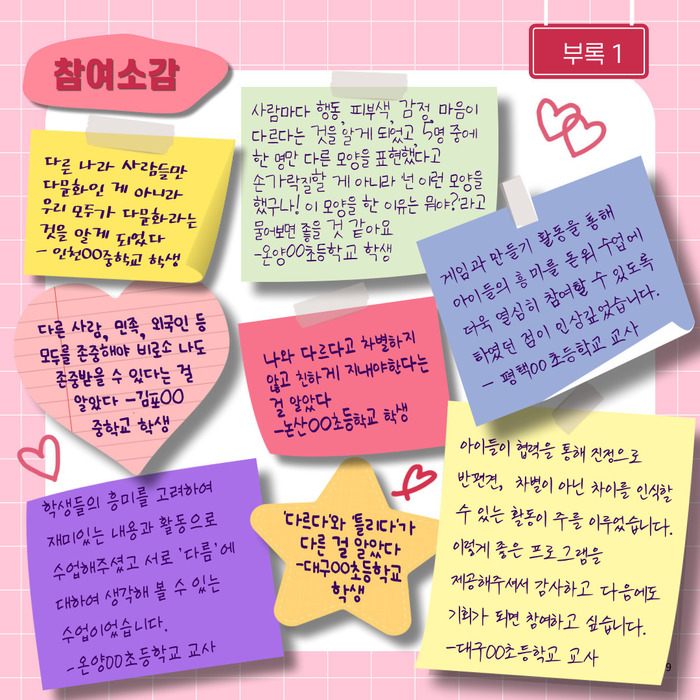 참여소감
부록 1
다른 나라 사람들만
다문화인 게 아니라
우리 모두가 다문화라는
것을 알게 되었다
- 인천OO중학교 학생
사람마다 행동, 피부색, 감정, 마음이
다르다는 것을 알게 되었고, 5명 중에
한 명만 다른 모양을 표현했다고
손가락질할 게 아니라 넌 이런 모양을
했구나! 이 모양을 한 이유는 뭐야?라고
물어보면 좋을 것 같아요
-온양OO초등학교 학생
게임과 만들기 활동을 통해
아이들의 흥미를 돋워 수업에
더욱 열심히 참여할 수 있도록
하였던 점이 인상깊었습니다.
- 평택OO초등학교 교사
다른 사람, 민족, 외국인 등
모두를 존중해야 비로소 나도
존중받을 수 있다는 걸
알았다 -김포OO
중학교 학생
나와 다르다고 차별하지
않고 친하게 지내야한다는
걸 알았다
-논산OO초등학교 학생
학생들의 흥미를 고려하여
재미있는 내용과 활동으로
수업해주셨고 서로 '다름'에
대하여 생각해 볼 수 있는
수업이었습니다.
-온양OO초등학교 교사
'다르다'와 '틀리다'가
다른 걸 알았다
-대구OO초등학교
학생
아이들이 협력을 통해 진정으로
반편견, 차별이 아닌 차이를 인식할
수 있는 활동이 주를 이루었습니다.
이렇게 좋은 프로그램을
제공해주셔서 감사하고 다음에도
기회가 되면 참여하고 싶습니다.
-대구OO초등학교 교사
9